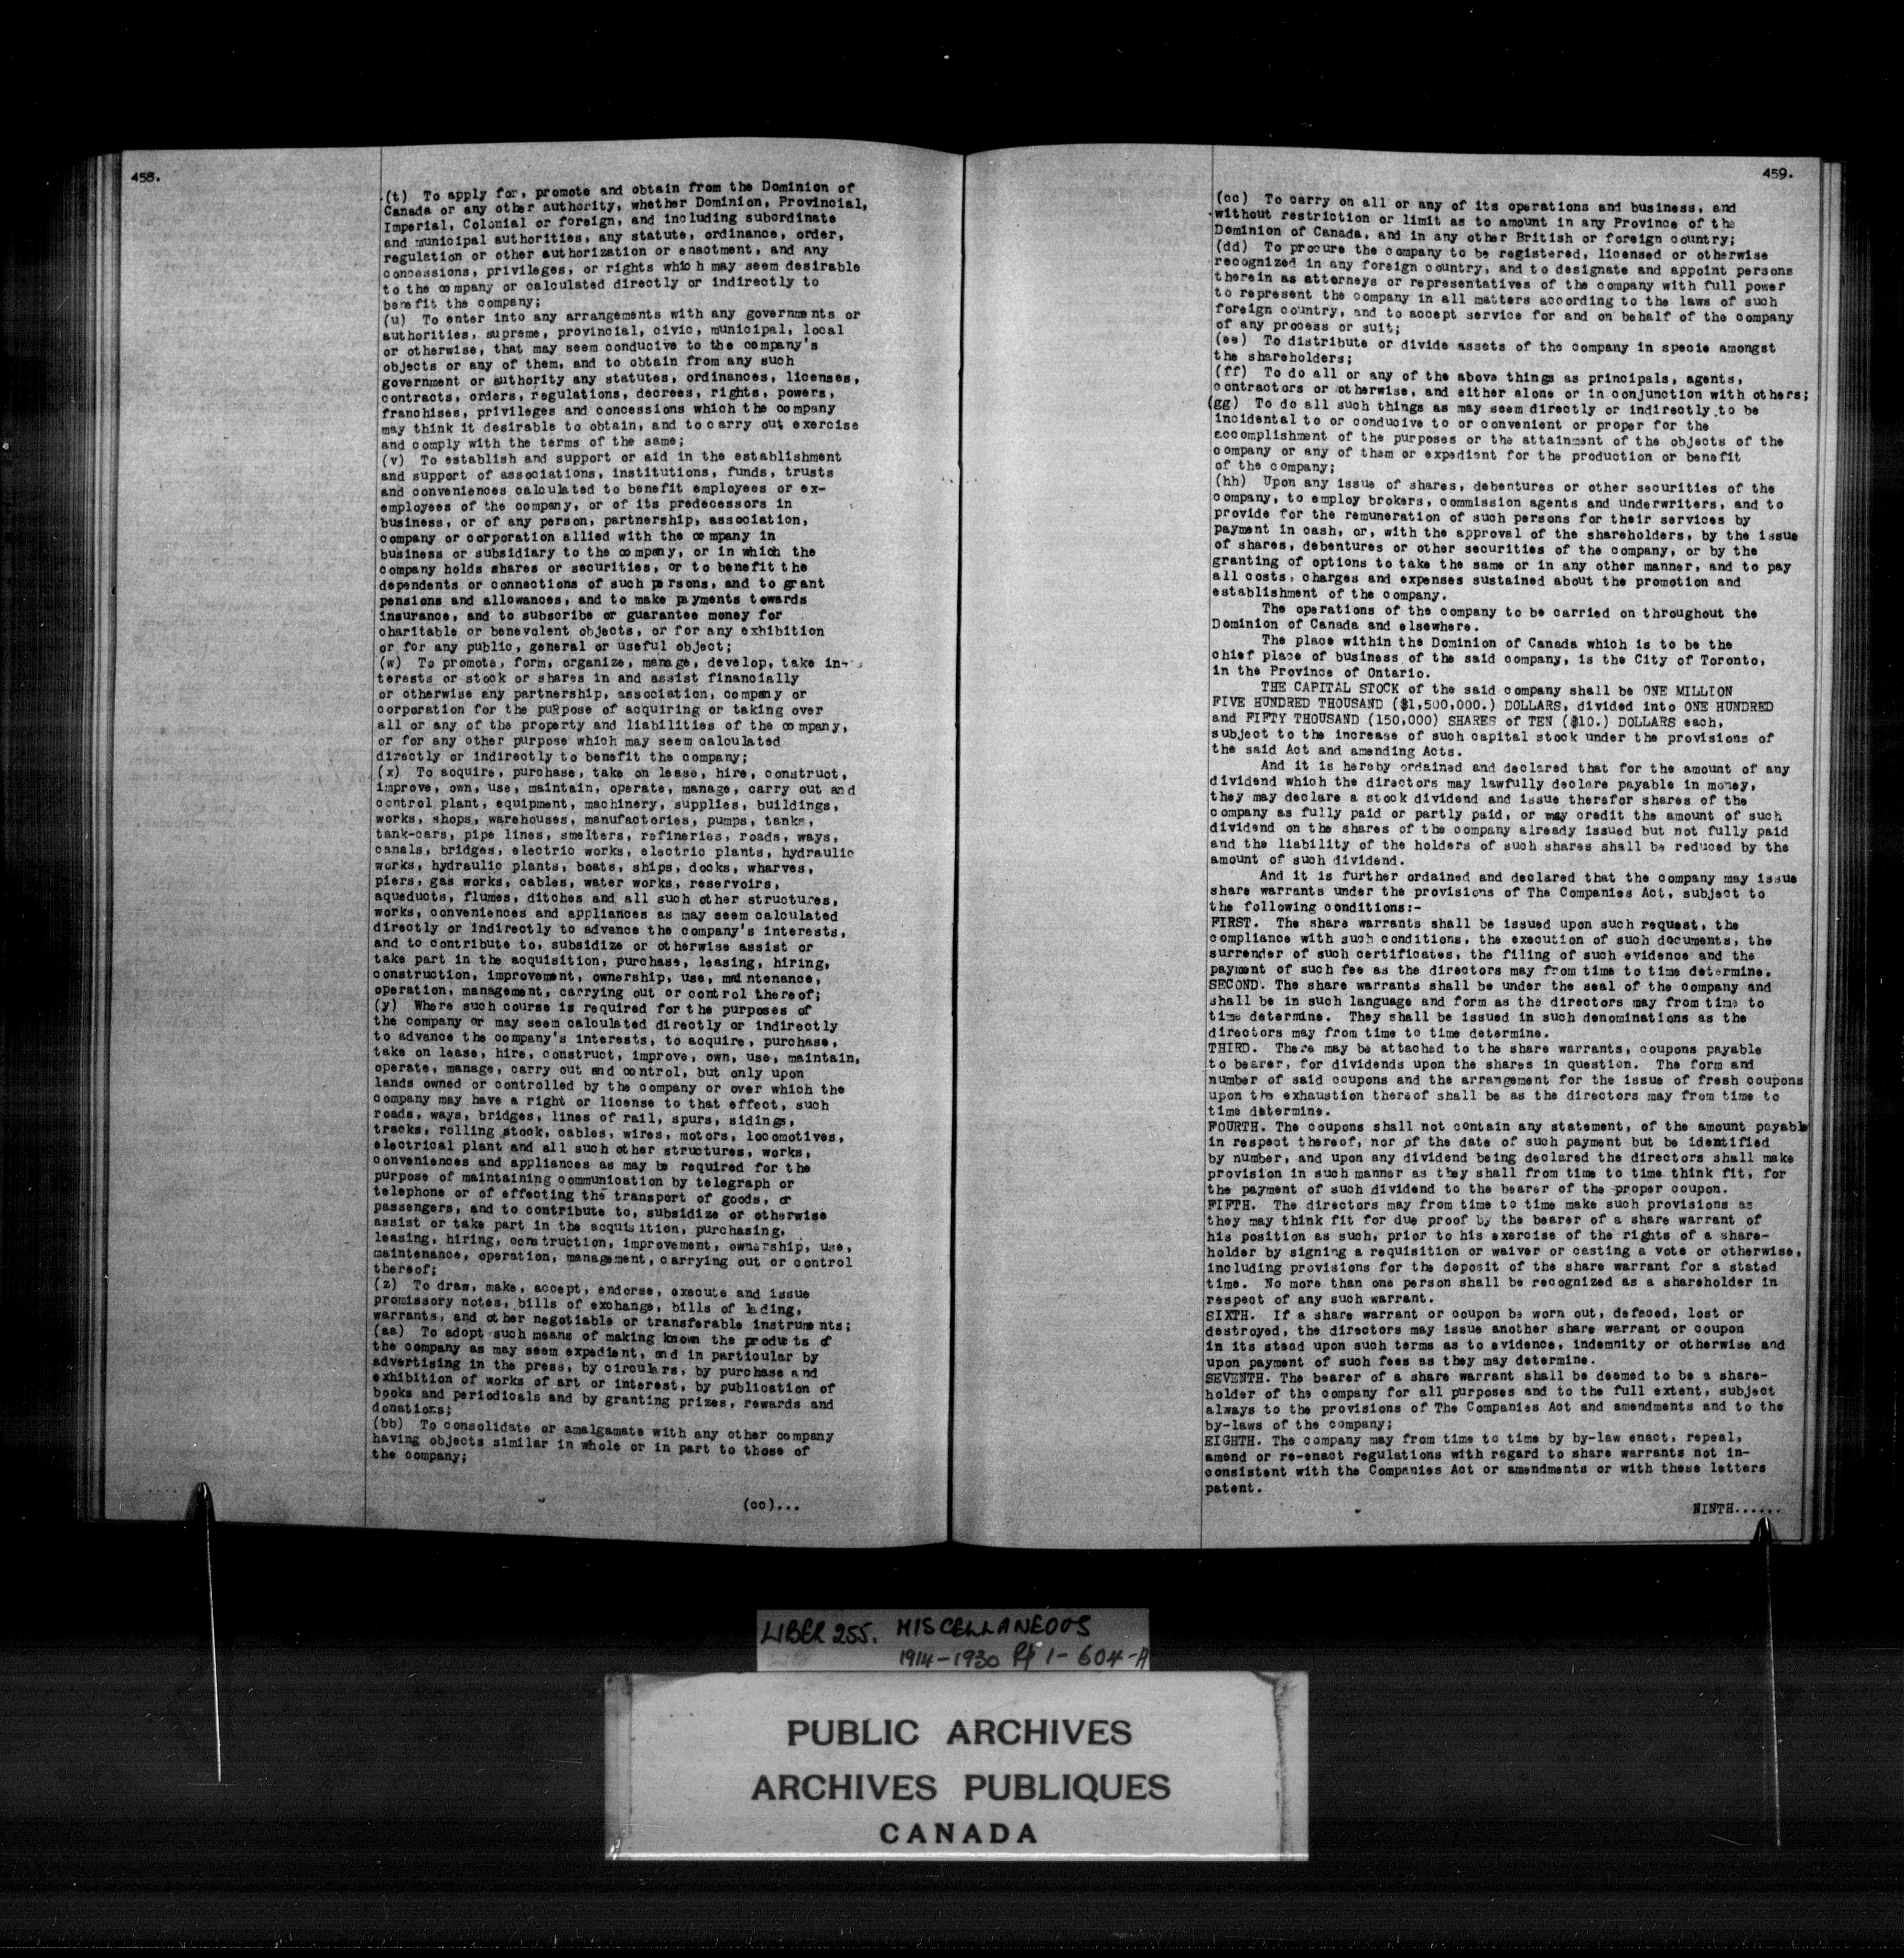 458.
(t) To apply for, promote and obtain from the Dominion of
Canada or any other authority, whether Dominion, Provincial,
Imperial, Colonial or foreign, and including subordinate
and municipal authorities, any statute, ordinance, order,
regulation or other authorization or enactment, and any
concessions, privileges, or rights which may seem desirable
to the company or calculated directly or indirectly to
benefit the company;
(u) To enter into any arrangements with any governments or
authorities, supreme, provincial, civic, municipal, local
or otherwise, that may seem conducive to the company's
objects or any of them, and to obtain from any such
government or authority any statutes, ordinances, licenses,
contracts, orders, regulations, decrees, rights, powers,
franchises, privileges and concessions which the company
may think it desirable to obtain, and to carry out exercise
and comply with the terms of the same;
(v) To establish and support or aid in the establishment
and support of associations, institutions, funds, trusts
and conveniences calculated to benefit employees or ex-
employees of the company, or of its predecessors in
business, or of any person, partnership, association,
company or corporation allied with the company in
business or subsidiary to the company, or in which the
company holds shares or securities, or to benefit the
dependents or connections of such persons, and to grant
pensions and allowances, and to make payments towards
insurance, and to subscribe or guarantee money for
charitable or benevolent objects, or for any exhibition
or for any public, general or useful object;
(w) To promote, form, organize, manage, develop, take in-
terests or stock or shares in and assist financially
or otherwise any partnership, association, company or
corporation for the puRpose of acquiring or taking over
all or any of the property and liabilities of the company,
or for any other purpose which may seem calculated
directly or indirectly to benefit the company;
(x) To acquire, purchase, take on lease, hire, construct,
improve, own, use, maintain, operate, manage, carry out and
control plant, equipment, machinery, supplies, buildings,
works, shops, warehouses, manufactories, pumps, tanks,
tank-cars, pipe lines, smelters, refineries, roads, ways,
canals, bridges, electric works, electric plants, hydraulic
works, hydraulic plants, boats, ships, docks, wharves,
piers, gas works, cables, water works, reservoirs,
aqueducts, flumes, ditches and all such other structures,
works, conveniences and appliances as may seem calculated
directly or indirectly to advance the company's interests,
and to contribute to, subsidize or otherwise assist or
take part in the acquisition, purchase, leasing, hiring,
construction, improvement, ownership, use, maintenance,
operation, management, carrying out or control thereof;
(y) Where such course is required for the purposes of
the company or may seem calculated directly or indirectly
to advance the company's interests, to acquire, purchase,
take on lease, hire, construct, improve, own, use, maintain,
operate, manage, carry out and control, but only upon
lands owned or controlled by the company or over which the
company may have a right or license to that effect, such
roads, ways, bridges, lines of rail, spurs, sidings,
tracks, rolling stock, cables, wires, motors, locomotives,
electrical plant and all such other structures, works,
conveniences and appliances as may be required for the
purpose of maintaining communication by telegraph or
telephone or of effecting the transport of goods, or
passengers, and to contribute to, subsidize or otherwise
assist or take part in the acquisition, purchasing,
leasing, hiring, construction, improvement, ownership, use,
maintenance, operation, management, carrying out or control
thereof;
(z) To draw, make, accept, endorse, execute and issue
promissory notes, bills of exchange, bills of lading,
warrants, and other negotiable or transferable instruments;
(aa) To adopt such means of making known the products of
the company as may seem expedient, and in particular by
advertising in the press, by circulars, by purchase and
exhibition of works of art or interest, by publication of
books and periodicals and by granting prizes, rewards and
donations;
(bb) To consolidate or amalgamate with any other company
having objects similar in whole or in part to those of
the company;
(cc)...
459.
(cc) To carry on all or any of its operations and business, and
without restriction or limit as to amount in any Province of the
Dominion of Canada, and in any other British or foreign country;
(dd) To procure the company to be registered, licensed or otherwise
recognized in any foreign country, and to designate and appoint persons
therein as attorneys or representatives of the company with full power
to represent the company in all matters according to the laws of such
foreign country, and to accept service for and on behalf of the company
of any process or suit;
(ee) To distribute or divide assets of the company in specie amongst
the shareholders;
(ff) To do all or any of the above things as principals, agents,
contractors or otherwise, and either alone or in conjunction with others;
(gg) To do all such things as may seem directly or indirectly to be
incidental to or conducive to or convenient or proper for the
accomplishment of the purposes or the attainment of the objects of the
company or any of them or expedient for the production or benefit
of the company;
(hh) Upon any issue of shares, debentures or other securities of the
company, to employ brokers, commission agents and underwriters, and to
provide for the remuneration of such persons for their services by
payment in cash, or, with the approval of the shareholders, by the issue
of shares, debentures or other securities of the company, or by the
granting of options to take the same or in any other manner, and to pay
all costs, charges and expenses sustained about the promotion and
establishment of the company.
The operations of the company to be carried on throughout the
Dominion of Canada and elsewhere.
The place within the Dominion of Canada which is to be the
chief place of business of the said company, is the City of Toronto,
in the Province of Ontario.
THE CAPITAL STOCK of the said company shall be ONE MILLION
FIVE HUNDRED THOUSAND ($1,500,000.) DOLLARS, divided into ONE HUNDRED
and FIFTY THOUSAND (150,000) SHARES of TEN ($10.) DOLLARS each,
subject to the increase of such capital stock under the provisions of
the said Act and amending Acts.
And it is hereby ordained and declared that for the amount of any
dividend which the directors may lawfully declare payable in money,
they may declare a stock dividend and issue therefor shares of the
company as fully paid or partly paid, or may credit the amount of such
dividend on the shares of the company already issued but not fully paid
and the liability of the holders of such shares shall be reduced by the
amount of such dividend.
And it is further ordained and declared that the company may issue
share warrants under the provisions of The Companies Act, subject to
the following conditions:-
FIRST. The share warrants shall be issued upon such request, the
compliance with such conditions, the execution of such documents, the
surrender of such certificates, the filing of such evidence and the
payment of such fee as the directors may from time to time determine.
SECOND. The share warrants shall be under the seal of the company and
shall be in such language and form as the directors may from time to
time determine. They shall be issued in such denominations as the
directors may from time to time determine.
THIRD. There may be attached to the share warrants, coupons payable
to bearer, for dividends upon the shares in question. The form and
number of said coupons and the arrangement for the issue of fresh coupons
upon the exhaustion thereof shall be as the directors may from time to
time determine.
FOURTH. The coupons shall not contain any statement, of the amount payable
in respect thereof, nor of the date of such payment but be identified
by number, and upon any dividend being declared the directors shall make
provision in such manner as they shall from time to time think fit, for
the payment of such dividend to the bearer of the proper coupon.
FIFTH. The directors may from time to time make such provisions as
they may think fit for due proof by the bearer of a share warrant of
his position as such, prior to his exercise of the rights of a share-
holder by signing a requisition or waiver or casting a vote or otherwise,
including provisions for the deposit of the share warrant for a stated
time. No more than one person shall be recognized as a shareholder in
respect of any such warrant.
SIXTH. If a share warrant or coupon be worn out, defaced, lost or
destroyed, the directors may issue another share warrant or coupon
in its stead upon such terms as to evidence, indemnity or otherwise and
upon payment of such fees as they may determine.
SEVENTH. The bearer of a share warrant shall be deemed to be a share-
holder of the company for all purposes and to the full extent, subject
always to the provisions of The Companies Act and amendments and to the
by-laws of the company;
EIGHTH. The company may from time to time by by-law enact, repeal,
amend or re-enact regulations with regard to share warrants not in-
consistent with the Companies Act or amendments or with these letters
patent.
NINTH......
LIBER 255. MISCELLANEOUS
1914-1930 Pp 1-604-A
PUBLIC ARCHIVES
ARCHIVES PUBLIQUES
CANADA